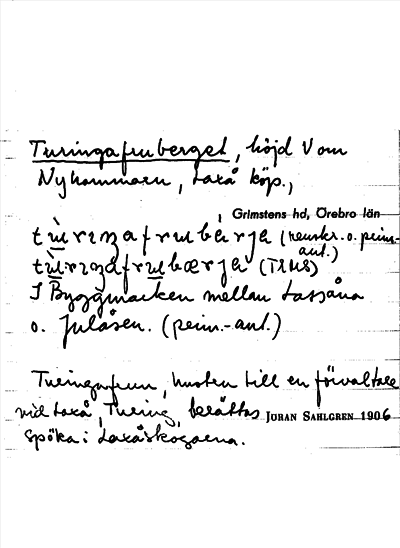 Turingafruberget, höjd V om
Nyhammaren, Laxå köp.,
Grimstens hd, Örebro län
(renskr. o. prim.-
ant.)
(TRMS)
I Byggmarken mellan Lassåna
o. Julåsen. (prim.-ant.)
Turingafrun, hustru till en förvaltare
vid Laxå, Turing, berättas
JÖRAN SAHLGREN 1906
spöka i Laxåskogarna.